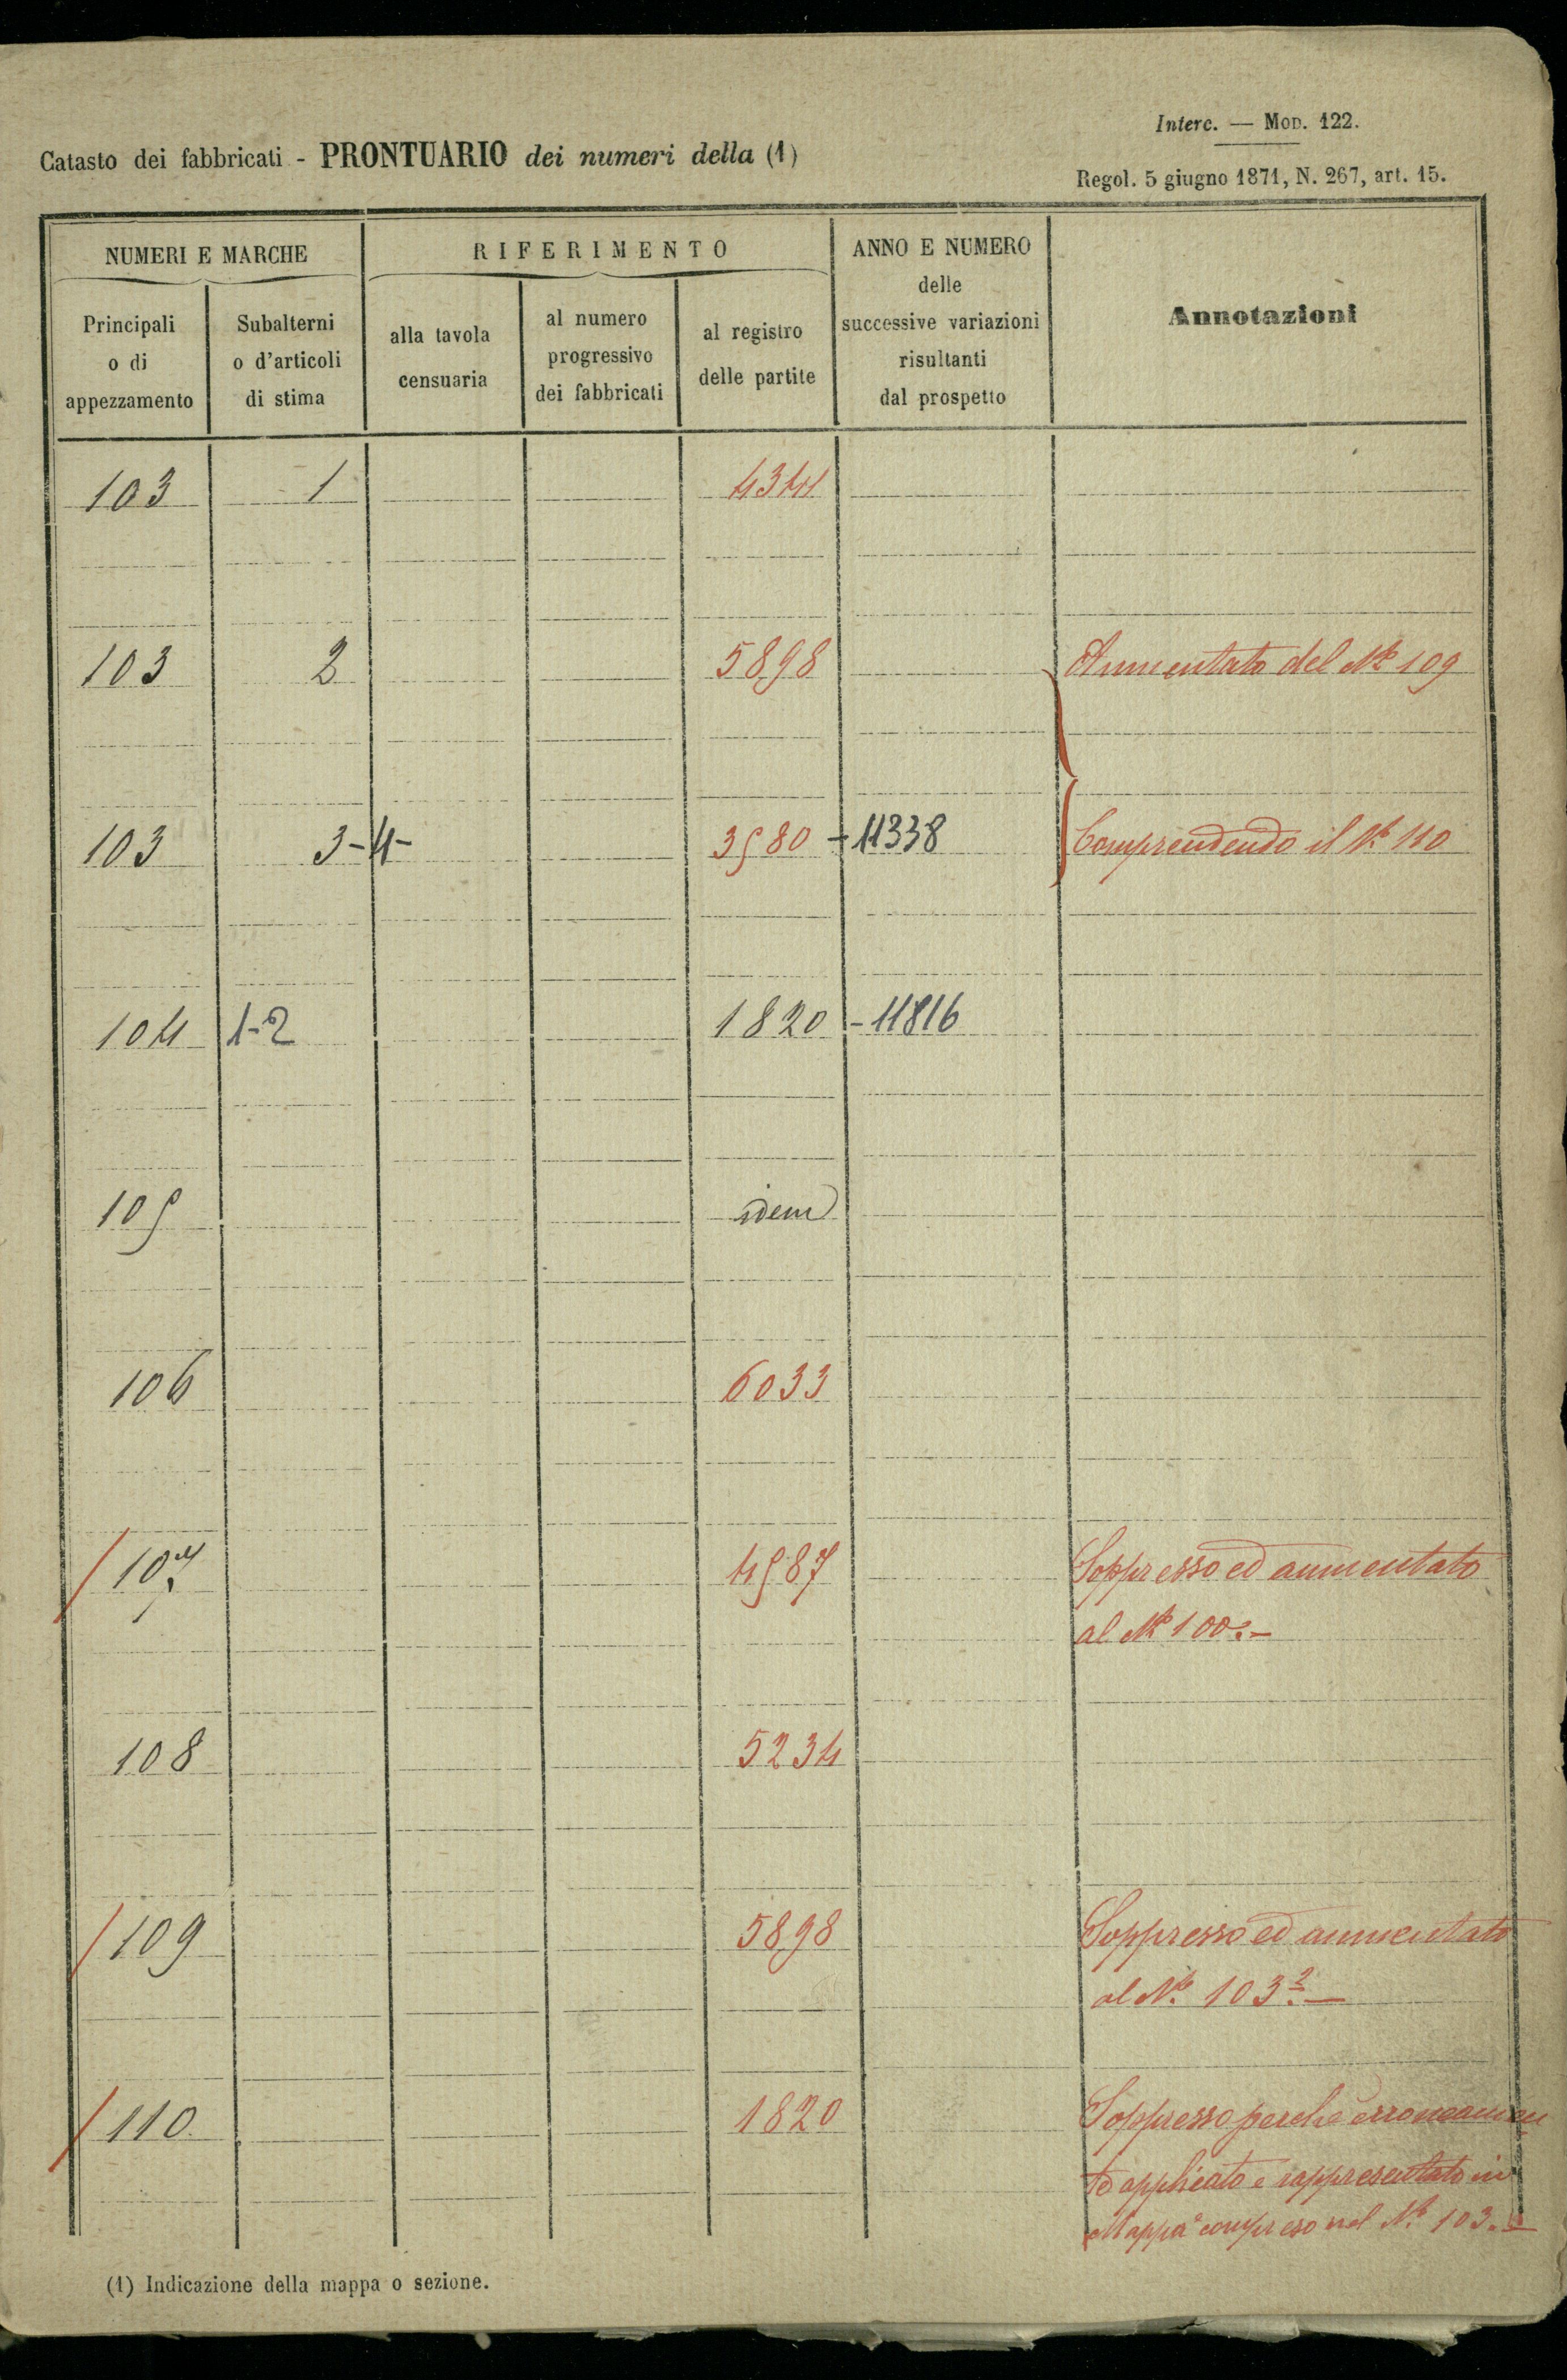 Interc. — Mod. 122.
Catasto dei fabbricati - PRONTUARIO dei numeri della (1)
Regol. 5 giugno 1871, N. 267, art. 15.
NUMERI E MARCHE
RIFERIMENTO
ANNO E NUMERO
delle
successive variazioni
risultanti
dal prospetto
Annotazioni
Principali
o di
appezzamento
Subalterni
o d'articoli
di stima
alla tavola
censuaria
al numero
progressivo
dei fabbricati
al registro
delle partite
103 1 4344
103 2 5898 Aumentato del N.º 109
103 3-4- 3580 - 11338 Comprendendo il N.º 110
104 1-2 1820 - 11816
105 idem
106 6033
107 4587 Soppresso ed aumentato
al N.º 100.-
108 5234
109 5898 Soppresso ed aumentato
al N.º 103 2.-
110 1820 Soppresso perché erroneamen
te applicato e rappresentato in
Mappa compreso nel N.º 103.
(1) Indicazione della mappa o sezione.